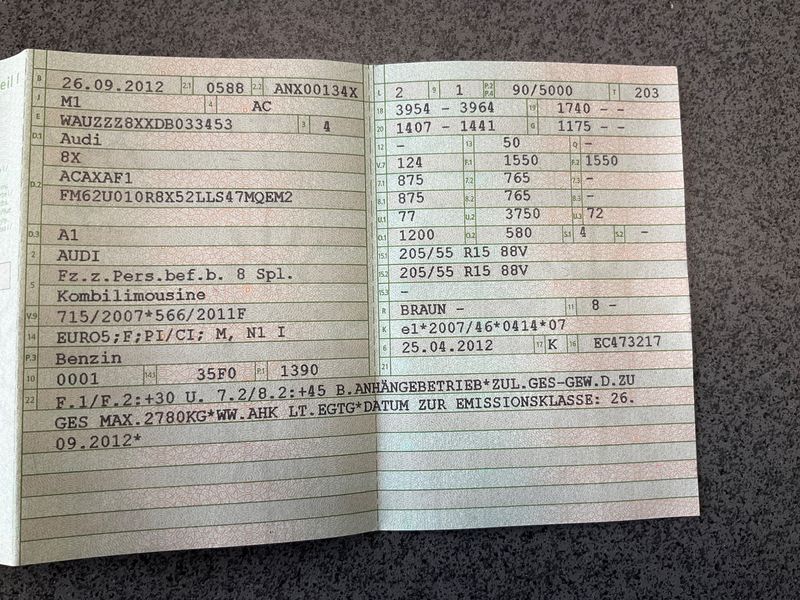 eil!
B 26.09.2012 2.1 0588 2.2 ANX00134X
J M1 4 AC
E WAUZZZ8XXDB033453 3 4
D.1 Audi
8X
D.2 ACAXAF1
FM62U010R8X52LLS47MQEM2
D.3 A1
2 AUDI
5 Fz.z.Pers.bef.b. 8 Spl.
Kombilimousine
V.9 715/2007*566/2011F
14 EURO5;F;PI/CI; M, N1 I
P.3 Benzin
10 0001 14.1 35F0 P.1 1390
L 2 9 1 P.2 P.4 90/5000 T 203
18 3954 - 3964 19 1740 - -
20 1407 - 1441 G 1175 - -
12 - 13 50 Q -
V.7 124 F.1 1550 F.2 1550
7.1 875 7.2 765 7.3 -
8.1 875 8.2 765 8.3 -
U.1 77 U.2 3750 U.3 72
O.1 1200 O.2 580 S.1 4 S.2 -
15.1 205/55 R15 88V
15.2 205/55 R15 88V
15.3 -
R BRAUN - 11 8 -
K e1*2007/46*0414*07
6 25.04.2012 17 K 16 EC473217
21
22 F.1/F.2:+30 U. 7.2/8.2:+45 B.ANHÄNGEBETRIEB*ZUL.GES-GEW.D.ZU
GES MAX.2780KG*WW.AHK LT.EGTG*DATUM ZUR EMISSIONSKLASSE: 26.
09.2012*